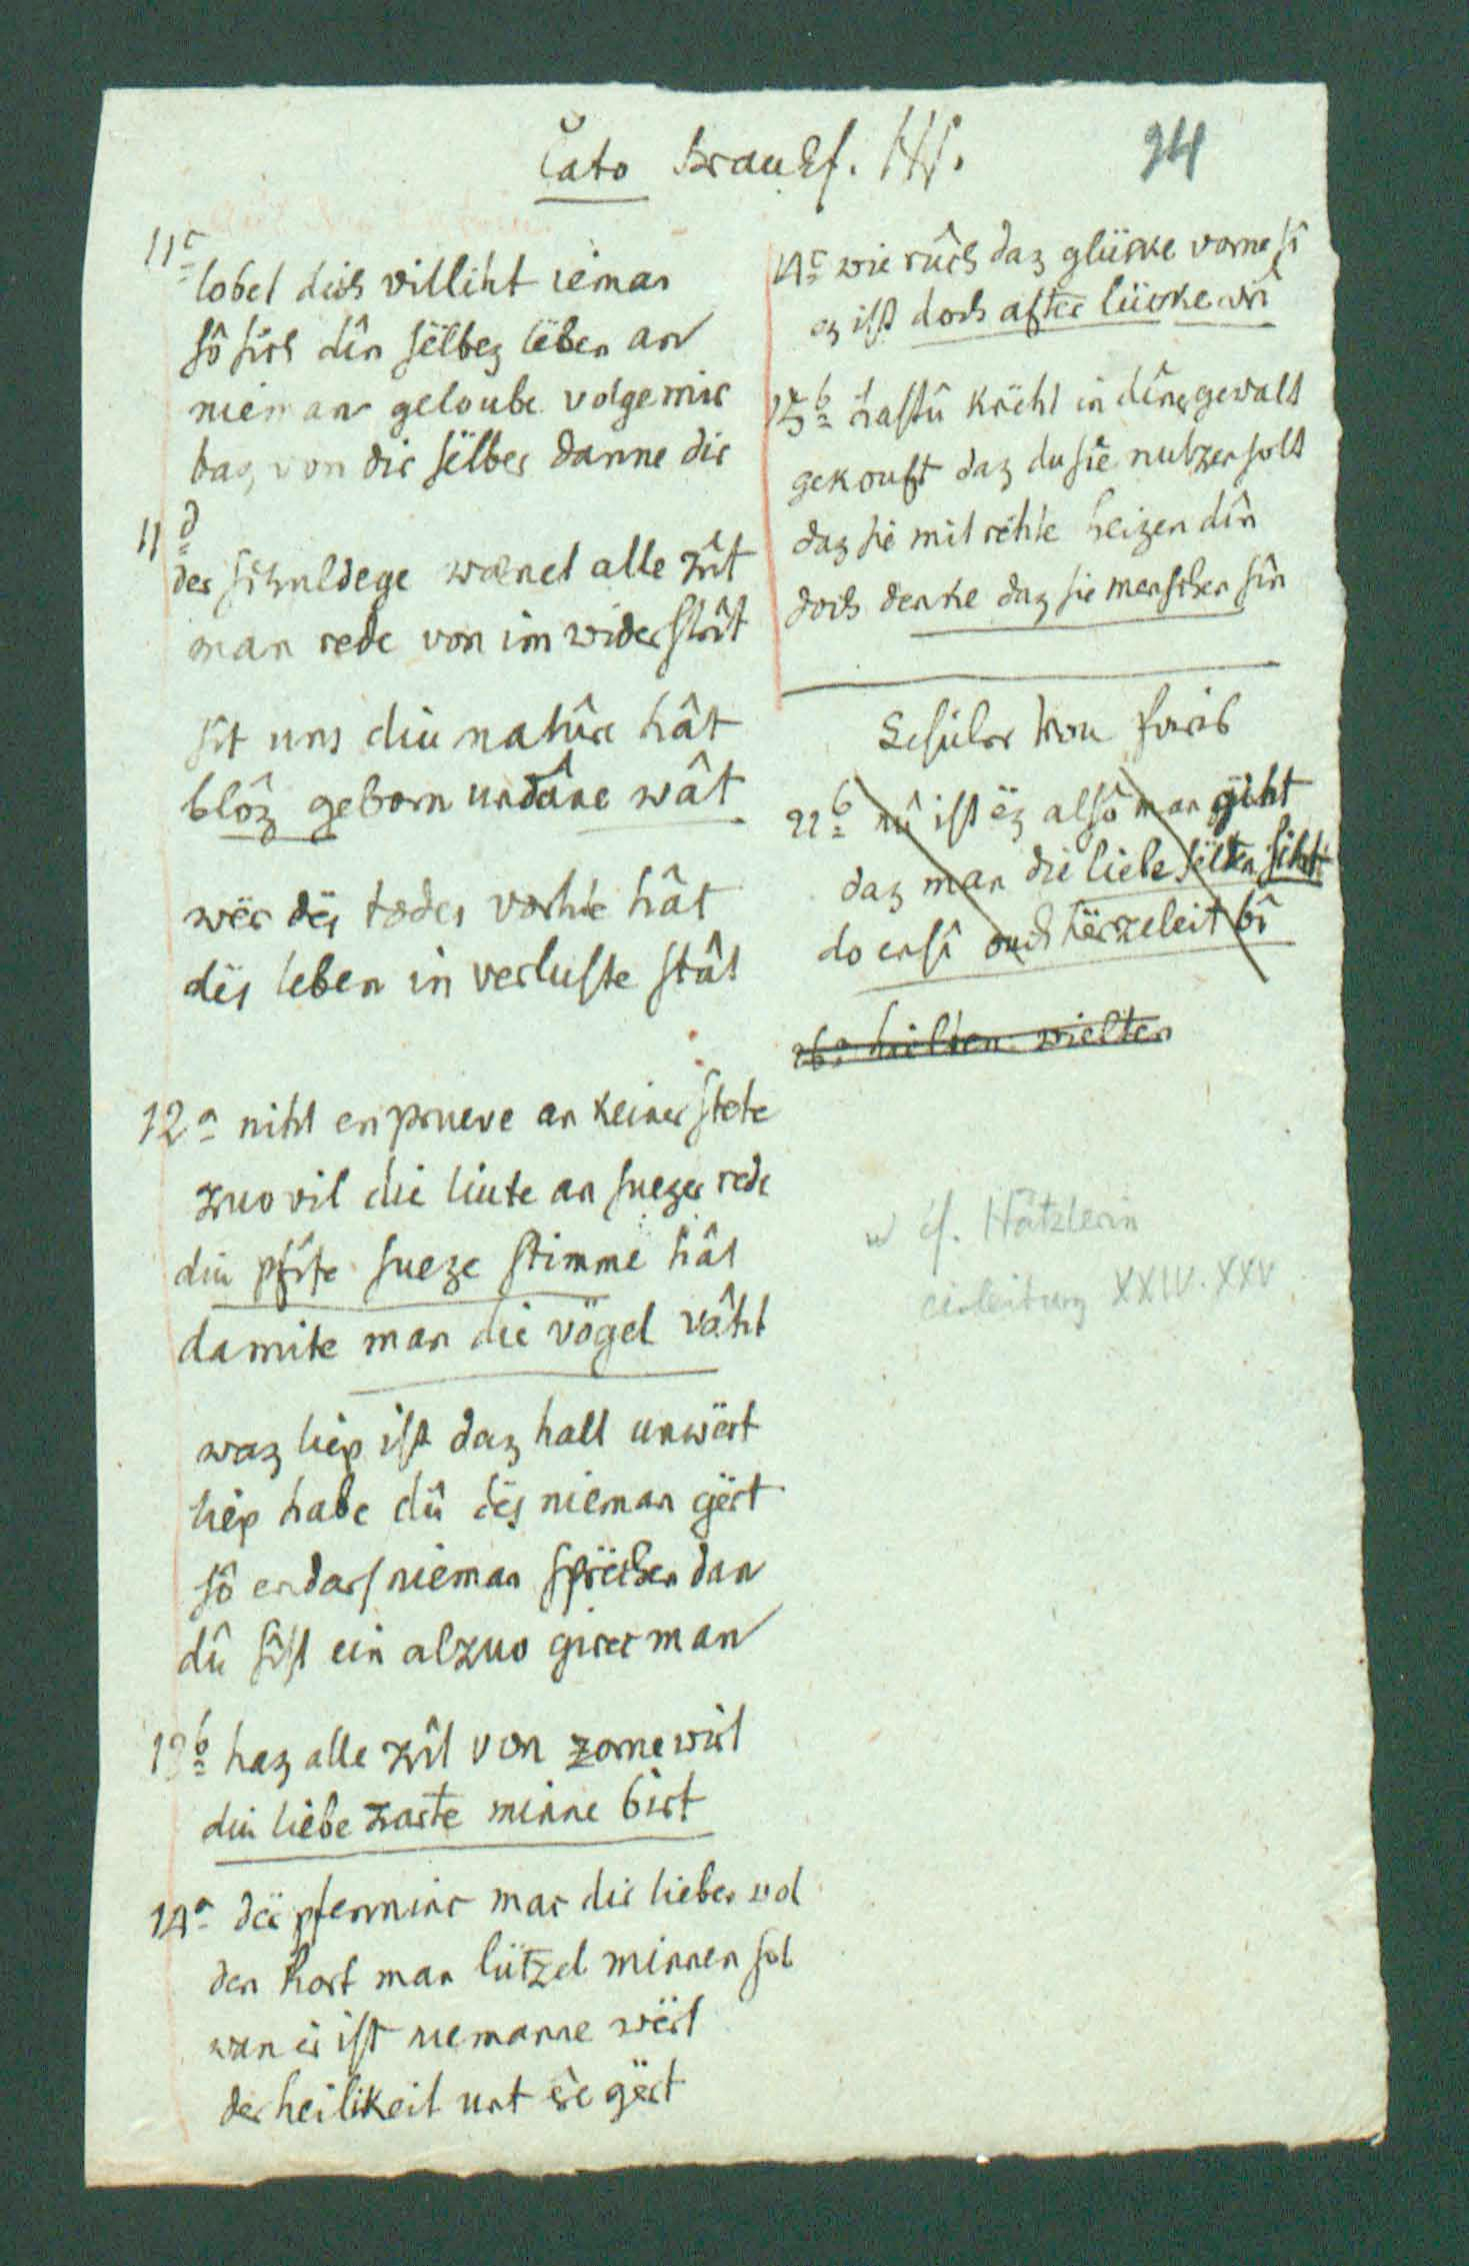 Cato Brauſ. Hſ.
94
11c
lobet dich villiht ieman
sô sich dîn sëlbez lëben an
nieman geloube volge mir
baz von dir sëlber danne dir
11d
der schuldege wænet alle zît
man rede von im widerstrît
sît uns diu natûre hât
blôz geborn und âne wât
wër dës todes vorhte hât
dës leben in verluste stât
12a niht enprueve an keiner stete
zuo vil die liute an suezer rede
diu pfîfe sueze stimme hât
damite man die vögel vâht
waz liep ist daz halt unwërt
liep habe dû dës nieman gërt
sô endarf nieman sprëchen dan
dû sîst ein alzuo girec man
13b haz alle zît von zorne wirt
diu liebe zarte minne birt
14a dër pfenninc mac dir lieben wol
den hort man lützel minnen sol
wan ër ist niemanne wërt
der heilikeit unt ere gërt
14c wie rûch daz glücke vorne sî
ez ist doch after lücke vrî
15b hastû knëht in dîner gewalt
gekouft daz du sie nutzen solt
daz sie mit rëhte heizen dîn
doch denke daz sie menschen sîn
Schüler von Paris
22b nû ist ëz alsô man giht
daz man die liebe sëlten siht
do ensî ouch hërzeleit bî
26a hielten: wielten
cf. Hätzlerin
einleitung XXIV. XXV